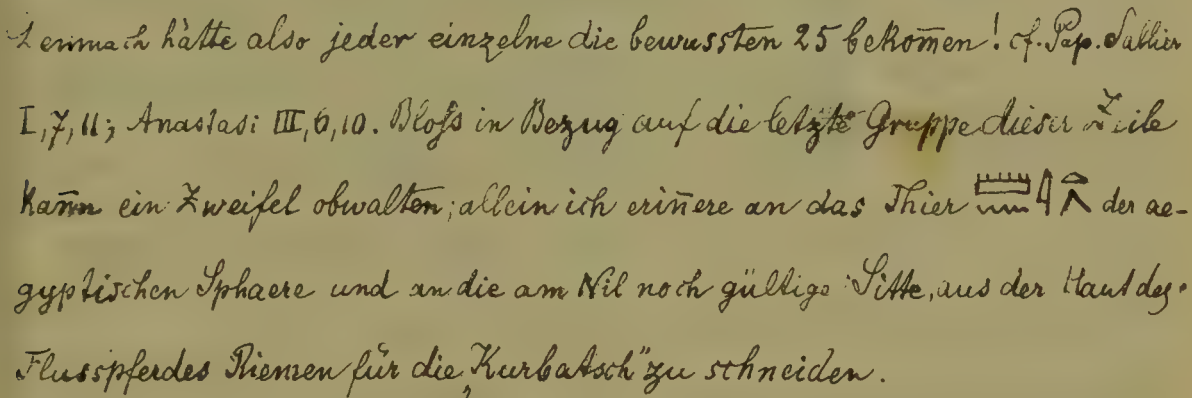 Demnach hätte also jeder einzelne die bewussten 25 bekom̄en! cf. Pap. Sallier
I, 7, 11; Anastasi III, 6, 10. Bloss in Bezug auf die letzte Gruppe dieser Zeile
kan̄n ein Zweifel obwalten; allein ich erin̄ere an das Thier 𓏠𓈖𓇋 der ae-
gyptischen Sphaere und an die am Nil noch gültige Sitte, aus der Haut des
Flusspferdes Riemen für die „Kurbatsch" zu schneiden.